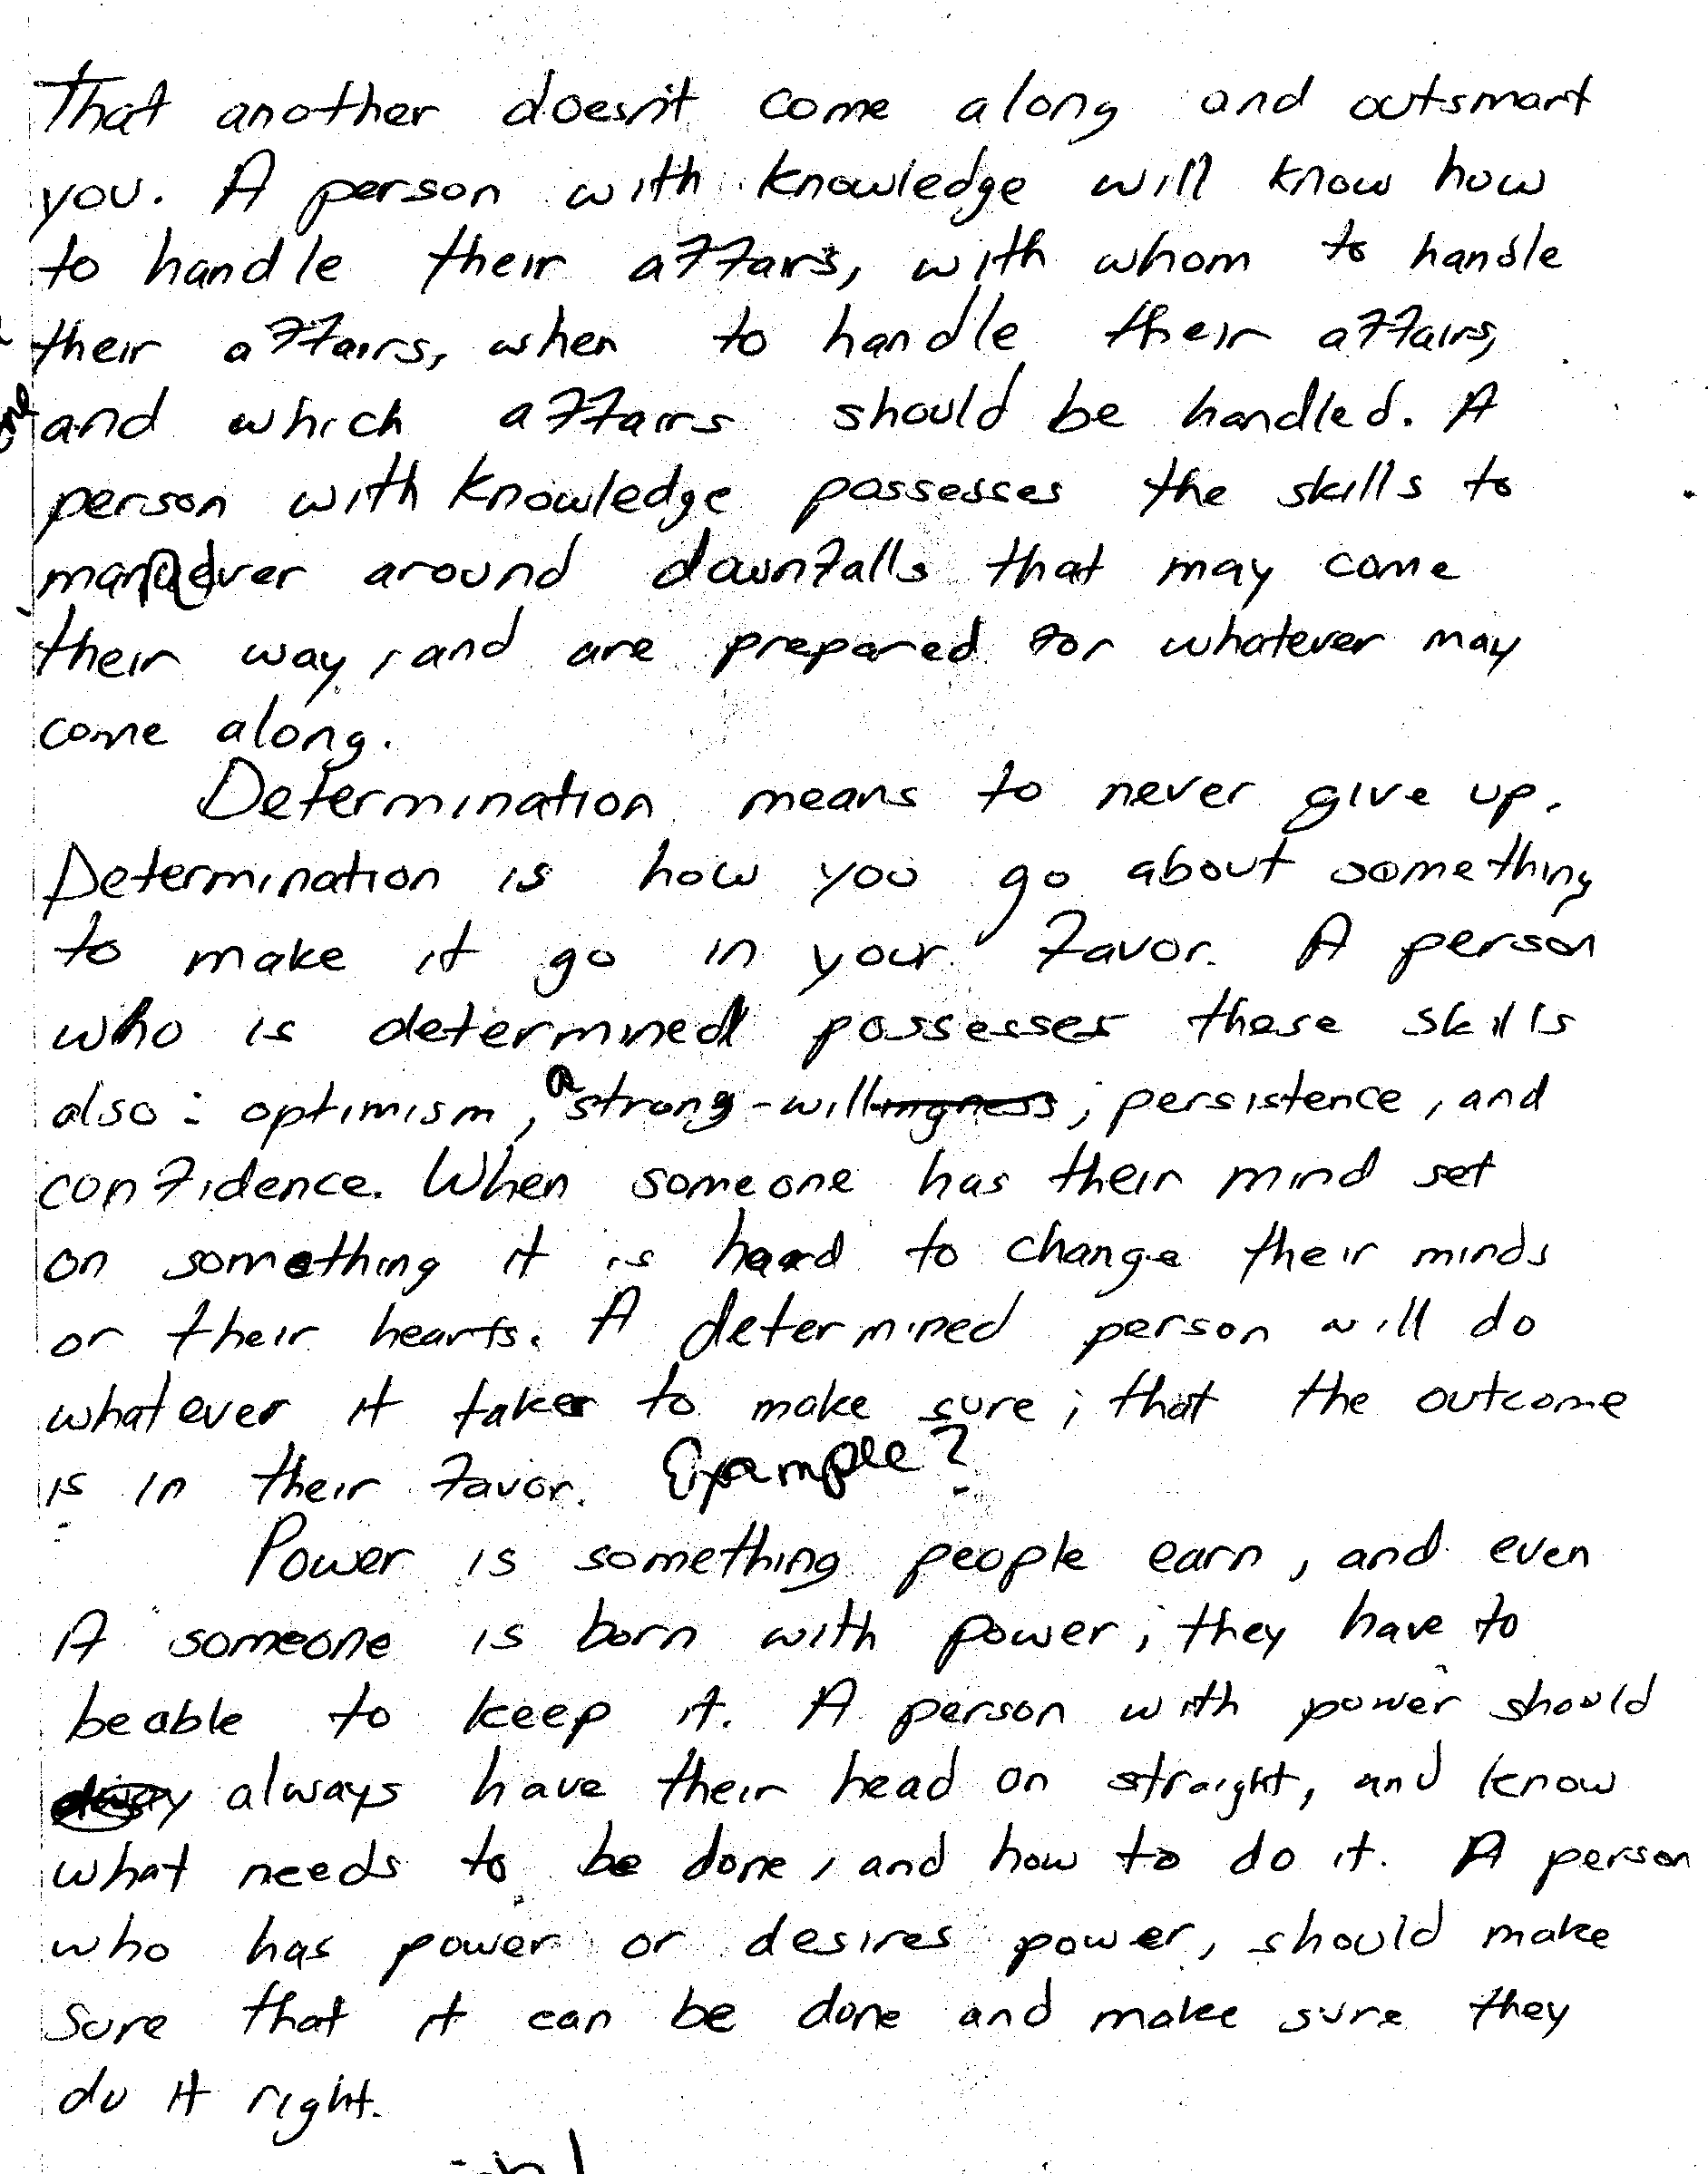 That another doesn't come along and outsmart
you. A person with knowledge will know how
to handle their affairs, with whom to handle
their affairs, when to handle their affairs,
and which affairs should be handled. A
person with knowledge possesses the skills to
around downfalls that may come
their way, and are prepared for whatever may
come along.
Determination means to never give up.
Determination is how you go about something
to make it go in your favor. A person
who is determined possesses these skills
also: optimism, a strong-willingness, persistence, and
confidence. When someone has their mind set
on something it is hard to change their minds
or their hearts. A determined person will do
whatever it takes to make sure; that the outcome
is in their favor. Example?
Power is something people earn, and even
if someone is born with power; they have to
beable to keep it. A person with power should
always have their head on straight, and know
what needs to be done, and how to do it. A person
who has power or desires power, should make
sure that it can be done and make sure they
do it right.